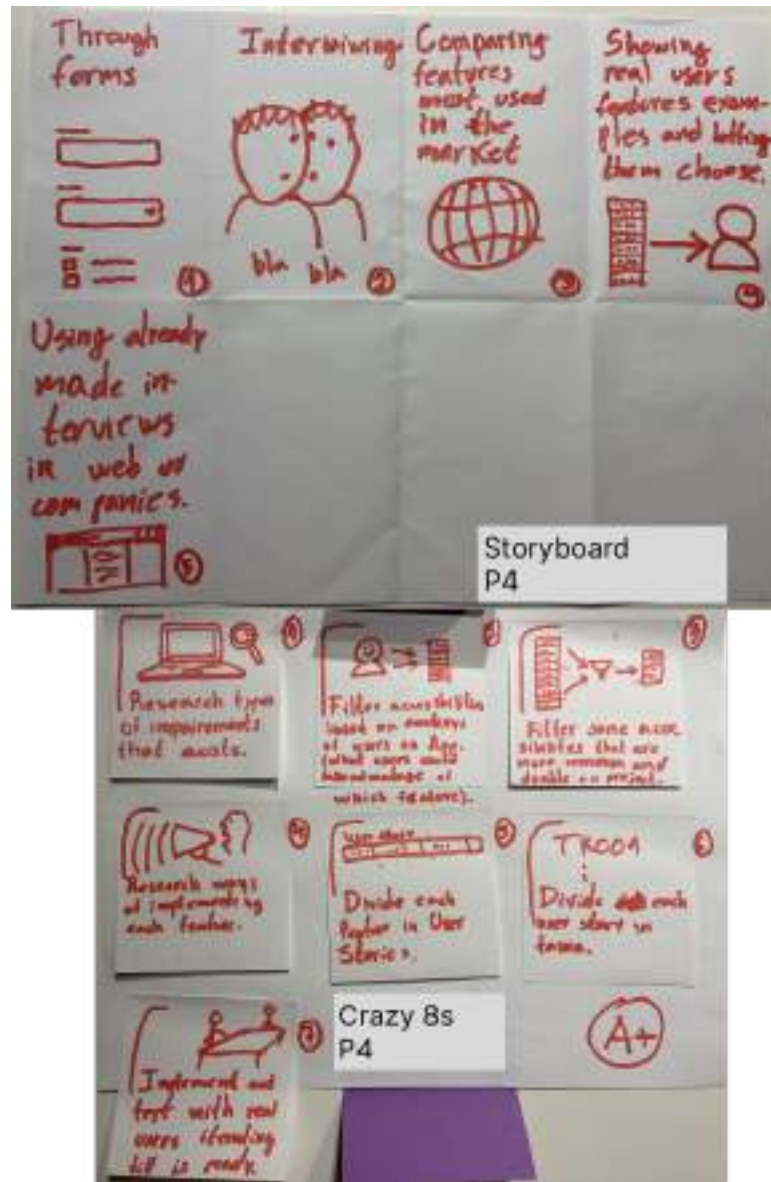 Through
forms
1
Interwining
bla bla
2
Comparing
features
most used
in the
market
3
Showing
real users
features exam-
ples and letting
them choose.
4
Using already
made in-
terviews
in web or
companies.
5
Storyboard
P4
1
Research types
of impairements
that exists.
2
Filter accessibilities
based on
of users on App.
(what users could
of
which feature).
3
Filter some acce
sibilites that are
more common and
doable on project.
4
Research ways
of implementing
each feature.
5
Divide each
in User
Stories.
6
Divide each
user story in
7
Implement and
test with real
users
till is ready.
Crazy 8s
P4
A+